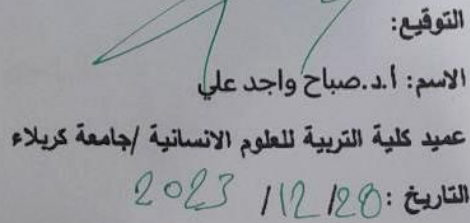 التوقيع:
الاسم: أ.د.صباح واجد علي
عميد كلية التربية للعلوم الانسانية /جامعة كربلاء
التاريخ: 28/ 12/ 2023